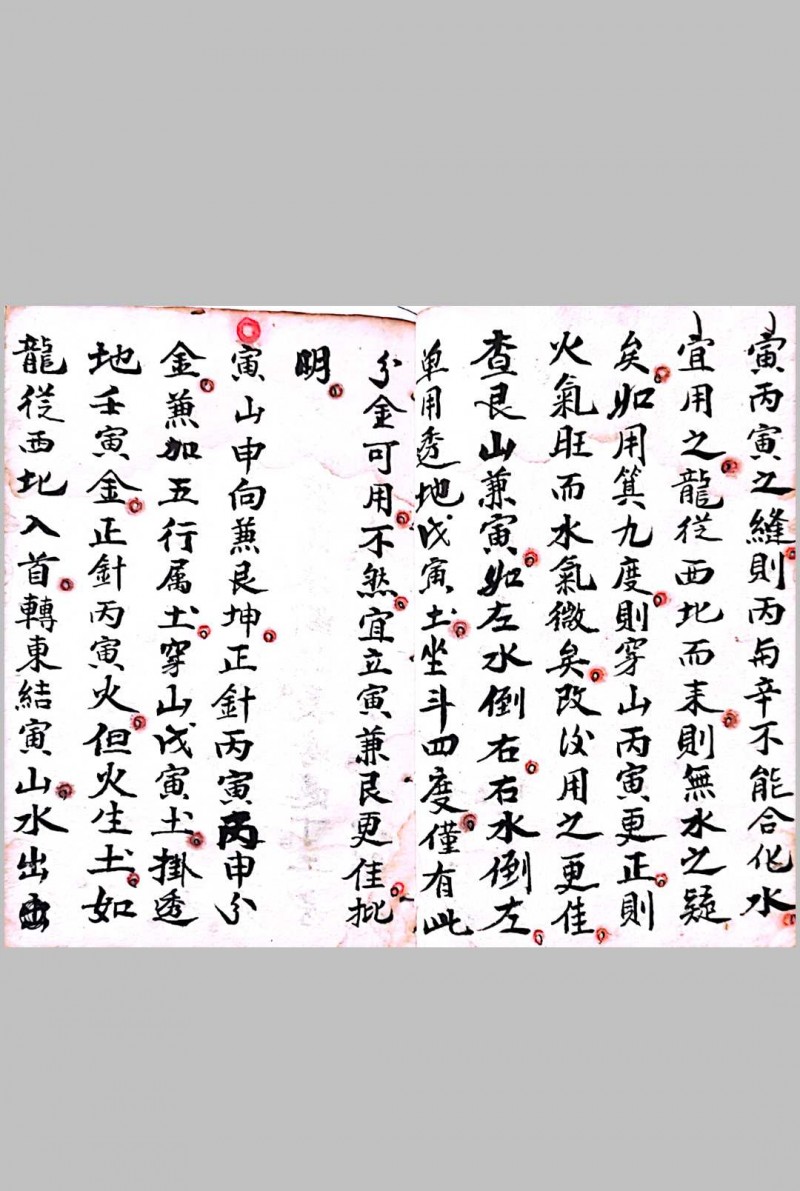 寅丙寅之縫則丙與辛不能合化水
宜用之龍從西北而来則無水之疑
矣如用箕九度則穿山丙寅更正則
火氣旺而水氣微矣改後用之更佳
查艮山兼寅如左水倒右右水倒左
单用透地戊寅土坐斗四度僅有此
分金可用不然宜立寅兼艮更佳批
明
寅山申向兼艮坤正針丙寅丙申分
金兼加五行属土穿山戊寅土掛透
地壬寅金正針丙寅火但火生土如
龍從西北入首轉東結寅山水出